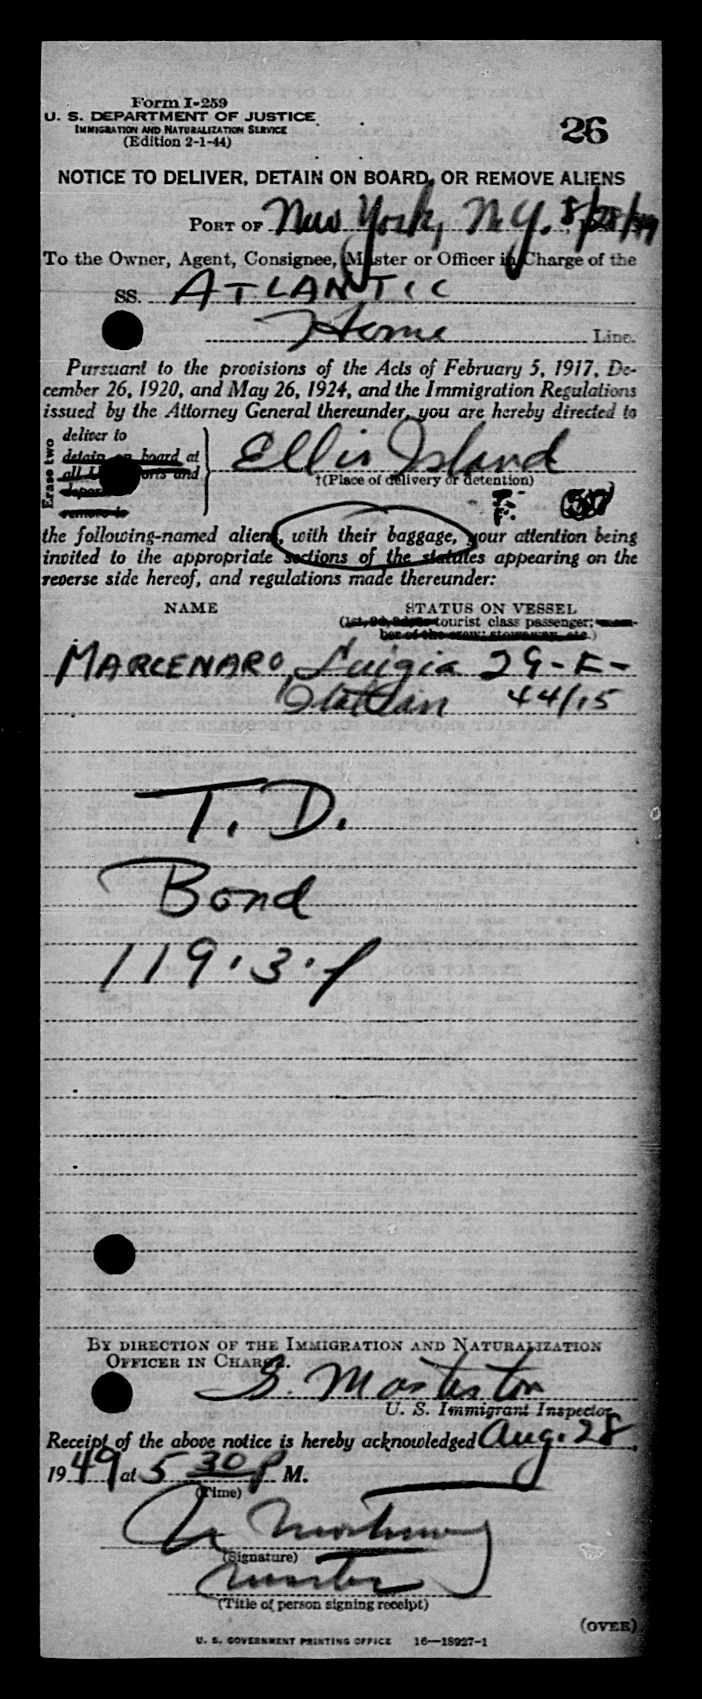 Form I-259
U. S. DEPARTMENT OF JUSTICE
IMMIGRATION AND NATURALIZATION SERVICE
(Edition 2-1-44)
26
NOTICE TO DELIVER, DETAIN ON BOARD, OR REMOVE ALIENS
PORT OF New York, N.Y. 8/28/49
To the Owner, Agent, Consignee, Master or Officer in Charge of the
SS. ATLANTIC
Home Line.
Pursuant to the provisions of the Acts of February 5, 1917, De-
cember 26, 1920, and May 26, 1924, and the Immigration Regulations
issued by the Attorney General thereunder, you are hereby directed to
Erase two
deliver to
detain on board at
all U ports and
remove to
Ellis Island
†(Place of delivery or detention)
the following-named alien, with their baggage, your attention being
invited to the appropriate sections of the statutes appearing on the
reverse side hereof, and regulations made thereunder:
NAME STATUS ON VESSEL
(1st, 2d, 3d, or tourist class passenger; mem-
ber of the crew; stowaway, etc.)
MARCENARO, Luigia 29-F-
Italian 44/15
T. D.
Bond
119.3.f
BY DIRECTION OF THE IMMIGRATION AND NATURALIZATION
OFFICER IN CHARGE.
S. Masterton
U. S. Immigrant Inspector
Receipt of the above notice is hereby acknowledged Aug. 28,
1949 at 5 30 P M.
(Time)
(Signature)
master
(Title of person signing receipt)
(OVER)
U. S. GOVERNMENT PRINTING OFFICE 16—18927-1